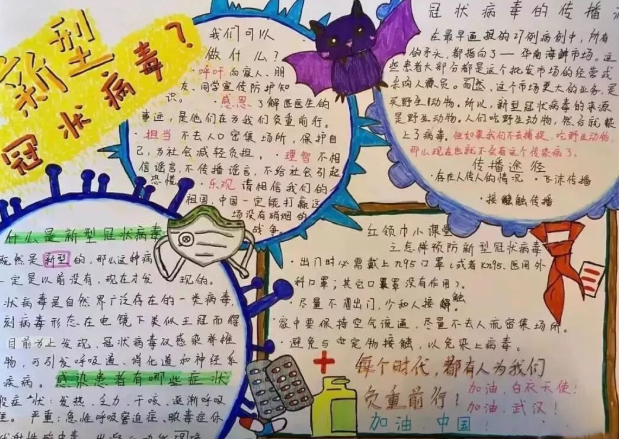 新型
冠状病毒?
我们可以
做什么?
·呼吁向家人、朋
友、同学宣传防护知
识。·感恩了解医医生的
事迹,是他们在为我们负重前行。
·担当 不去人口密集场所,保护自
己,为社会减轻负担。·理智 不相
信谣言,不传播谣言,不给社会引起
恐慌。·乐观 请相信我们的
祖国,中国一定能打赢这
场没有硝烟的
战争。
冠状病毒的传播
在最早通报的27例病例中,所有
的矛头都指向了——华南海鲜市场。这
些患者大部分都是这个批发市场的经营或
采购人员。而然,这个市场更大的业务,是
买野生动物。所以,新型冠状病毒的来源
是野生动物,人们吃野生动物,然后就染
上了病毒。但如果我们不去捕捉、吃野生动物,
那么现在也就不会有这个传染病了。
传播途径
·存在人传人的情况 ·飞沫传播
·接触传播
什么是新型冠状病毒
既然是新型的,那么这种病
一定是以前没有,现在才发现的。
状病毒是自然界广泛存在的一类病毒,
刻病毒形态在电镜下类似王冠而得
目前为止发现,冠状病毒仅感染脊椎
物,可引发呼吸道、消化道和神经系
疾病。感染患者有哪些症状
症状:发热、乏力、干咳、逐渐呼吸
严重:急性呼吸窘迫症、脓毒症休
红领巾小课堂
三点牌预防新型冠状病毒
·出门时必需戴上n95口罩(或者Kn95、医用外
科口罩;其它口罩没有作用)。
·尽量不用出门,少和人接触
家中要保持空气流通,尽量不去人流密集场所。
·避免与 定物接触,以免染上病毒。
每个时代,都有人为我们
负重前行!
加油,白衣天使!
加油,武汉!
加油,中国!